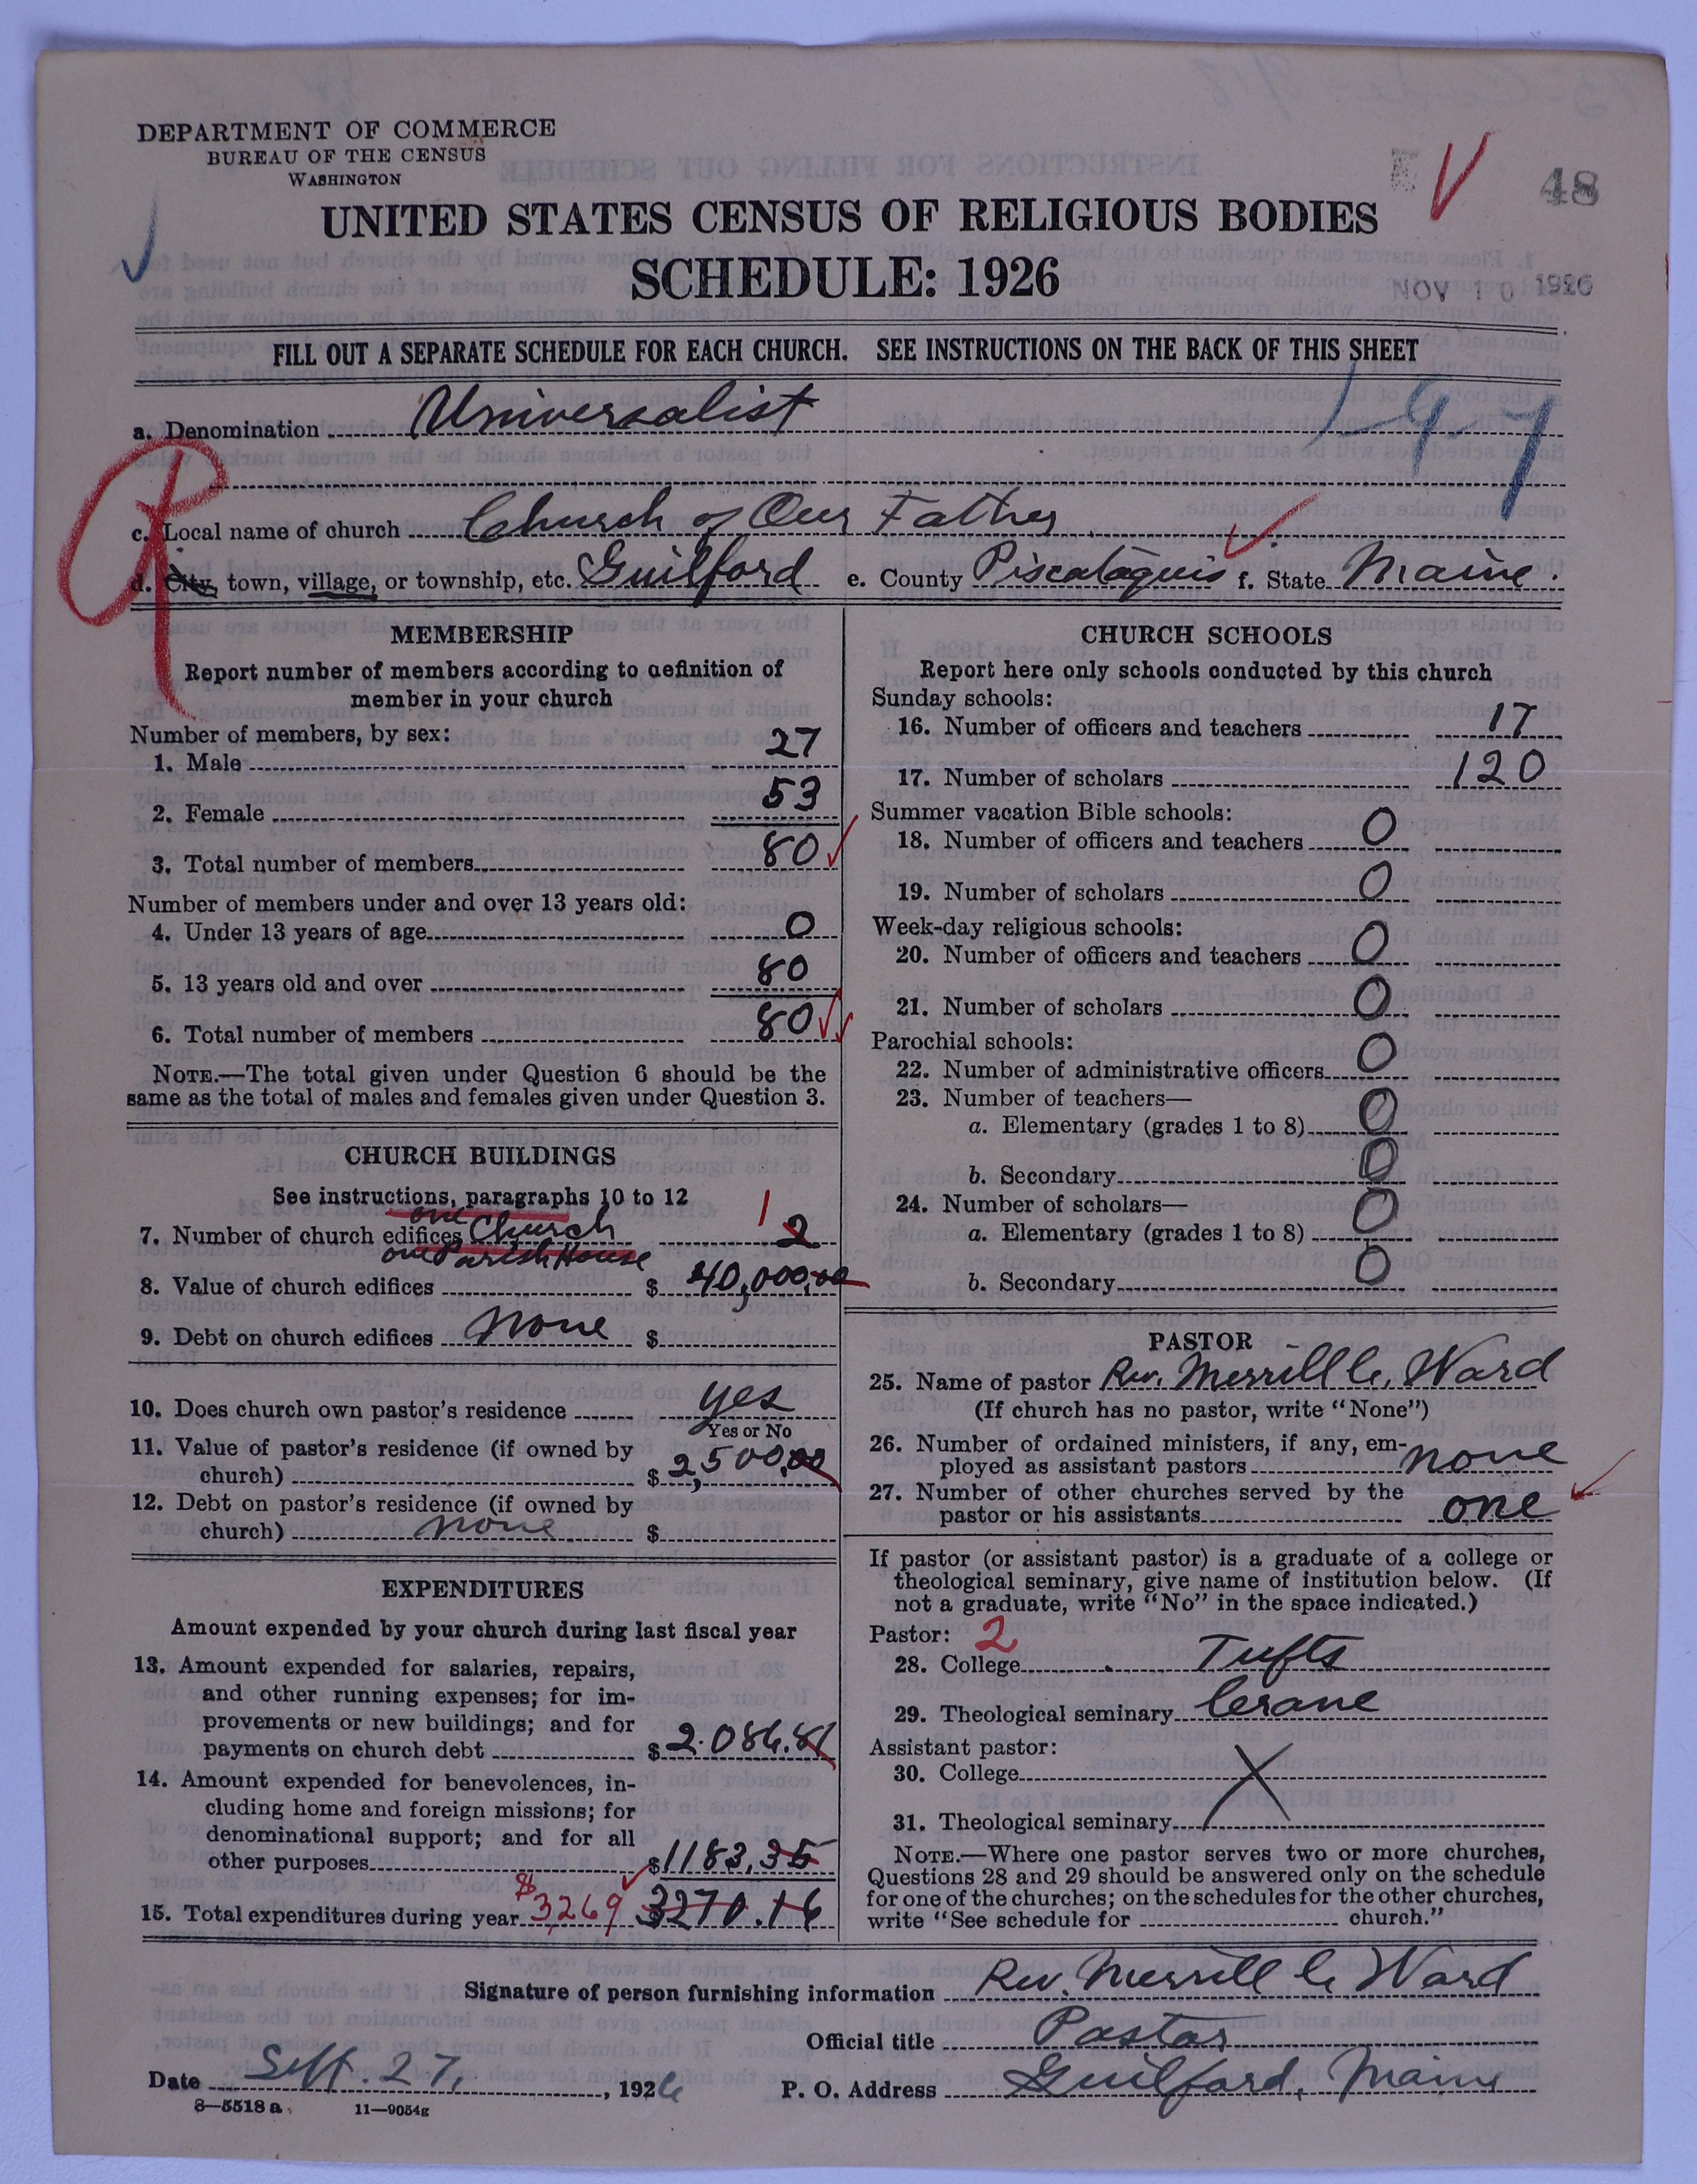 DEPARTMENT OF COMMERCE
BUREAU OF THE CENSUS
WASHINGTON
48
UNITED STATES CENSUS OF RELIGIOUS BODIES
SCHEDULE: 1926
NOV 10 1926
FILL OUT A SEPARATE SCHEDULE FOR EACH CHURCH. SEE INSTRUCTIONS ON THE BACK OF THIS SHEET
a. Denomination Universalist
1-9-7
c. Local name of church Church of Our Father
d. City, town, village, or township, etc. Guilford e. County Piscataquis f. State Maine.
MEMBERSHIP
Report number of members according to definition of
member in your church
Number of members, by sex:
1. Male 27
2. Female 53
3. Total number of members 80
Number of members under and over 13 years old:
4. Under 13 years of age 0
5. 13 years old and over 80
6. Total number of members 80
NOTE.—The total given under Question 6 should be the
same as the total of males and females given under Question 3.
CHURCH BUILDINGS
See instructions, paragraphs 10 to 12
one 1
7. Number of church edifices Church 2
one Parish House
8. Value of church edifices $ 40,000.00
9. Debt on church edifices none $
10. Does church own pastor's residence yes
Yes or No
11. Value of pastor's residence (if owned by
church) $ 2,500.00
12. Debt on pastor's residence (if owned by
church) none $
EXPENDITURES
Amount expended by your church during last fiscal year
13. Amount expended for salaries, repairs,
and other running expenses; for im-
provements or new buildings; and for
payments on church debt $ 2.086.81
14. Amount expended for benevolences, in-
cluding home and foreign missions; for
denominational support; and for all
other purposes $ 1183.35
15. Total expenditures during year $3269 3270.16
CHURCH SCHOOLS
Report here only schools conducted by this church
Sunday schools:
16. Number of officers and teachers 17
17. Number of scholars 120
Summer vacation Bible schools:
18. Number of officers and teachers 0
19. Number of scholars 0
Week-day religious schools:
20. Number of officers and teachers 0
21. Number of scholars 0
Parochial schools:
22. Number of administrative officers 0
23. Number of teachers—
a. Elementary (grades 1 to 8) 0
b. Secondary 0
24. Number of scholars—
a. Elementary (grades 1 to 8) 0
b. Secondary 0
PASTOR
25. Name of pastor Rev. Merrill C. Ward
(If church has no pastor, write "None")
26. Number of ordained ministers, if any, em-
ployed as assistant pastors none
27. Number of other churches served by the
pastor or his assistants one
If pastor (or assistant pastor) is a graduate of a college or
theological seminary, give name of institution below. (If
not a graduate, write "No" in the space indicated.)
Pastor: 2
28. College Tufts
29. Theological seminary Crane
Assistant pastor:
30. College
31. Theological seminary
NOTE.—Where one pastor serves two or more churches,
Questions 28 and 29 should be answered only on the schedule
for one of the churches; on the schedules for the other churches,
write "See schedule for church."
Signature of person furnishing information Rev. Merrill C. Ward
Official title Pastor
Date Sept. 27, 1926 P. O. Address Guilford, Maine
8—5518a 11—9054g